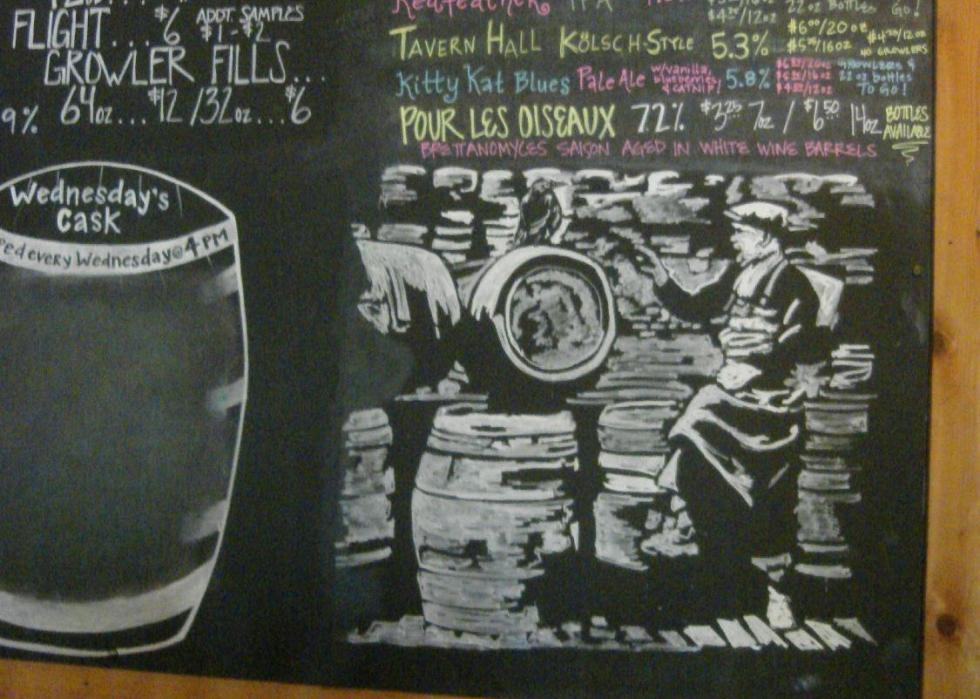 FLIGHT... $6 ADDT. SAMPLES $1-$2
GROWLER FILLS...
9% 64oz...$12 /32oz...$6
Wednesday's
Cask
every Wednesday @ 4 PM
Redfeather IPA
$4.25/12oz 22oz Bottles Go!
TAVERN HALL KÖLSCH-STYLE 5.3% $6.00/20oz
$5.00/16oz NO GROWLERS
Kitty Kat Blues Pale Ale w/vanilla, blueberries & CATNIP! 5.8% GROWLERS & 22oz bottles TO GO!
POUR LES OISEAUX 7.2% $3.25 7oz / $6.50 14oz BOTTLES AVAILABLE
BRETTANOMYCES SAISON AGED IN WHITE WINE BARRELS